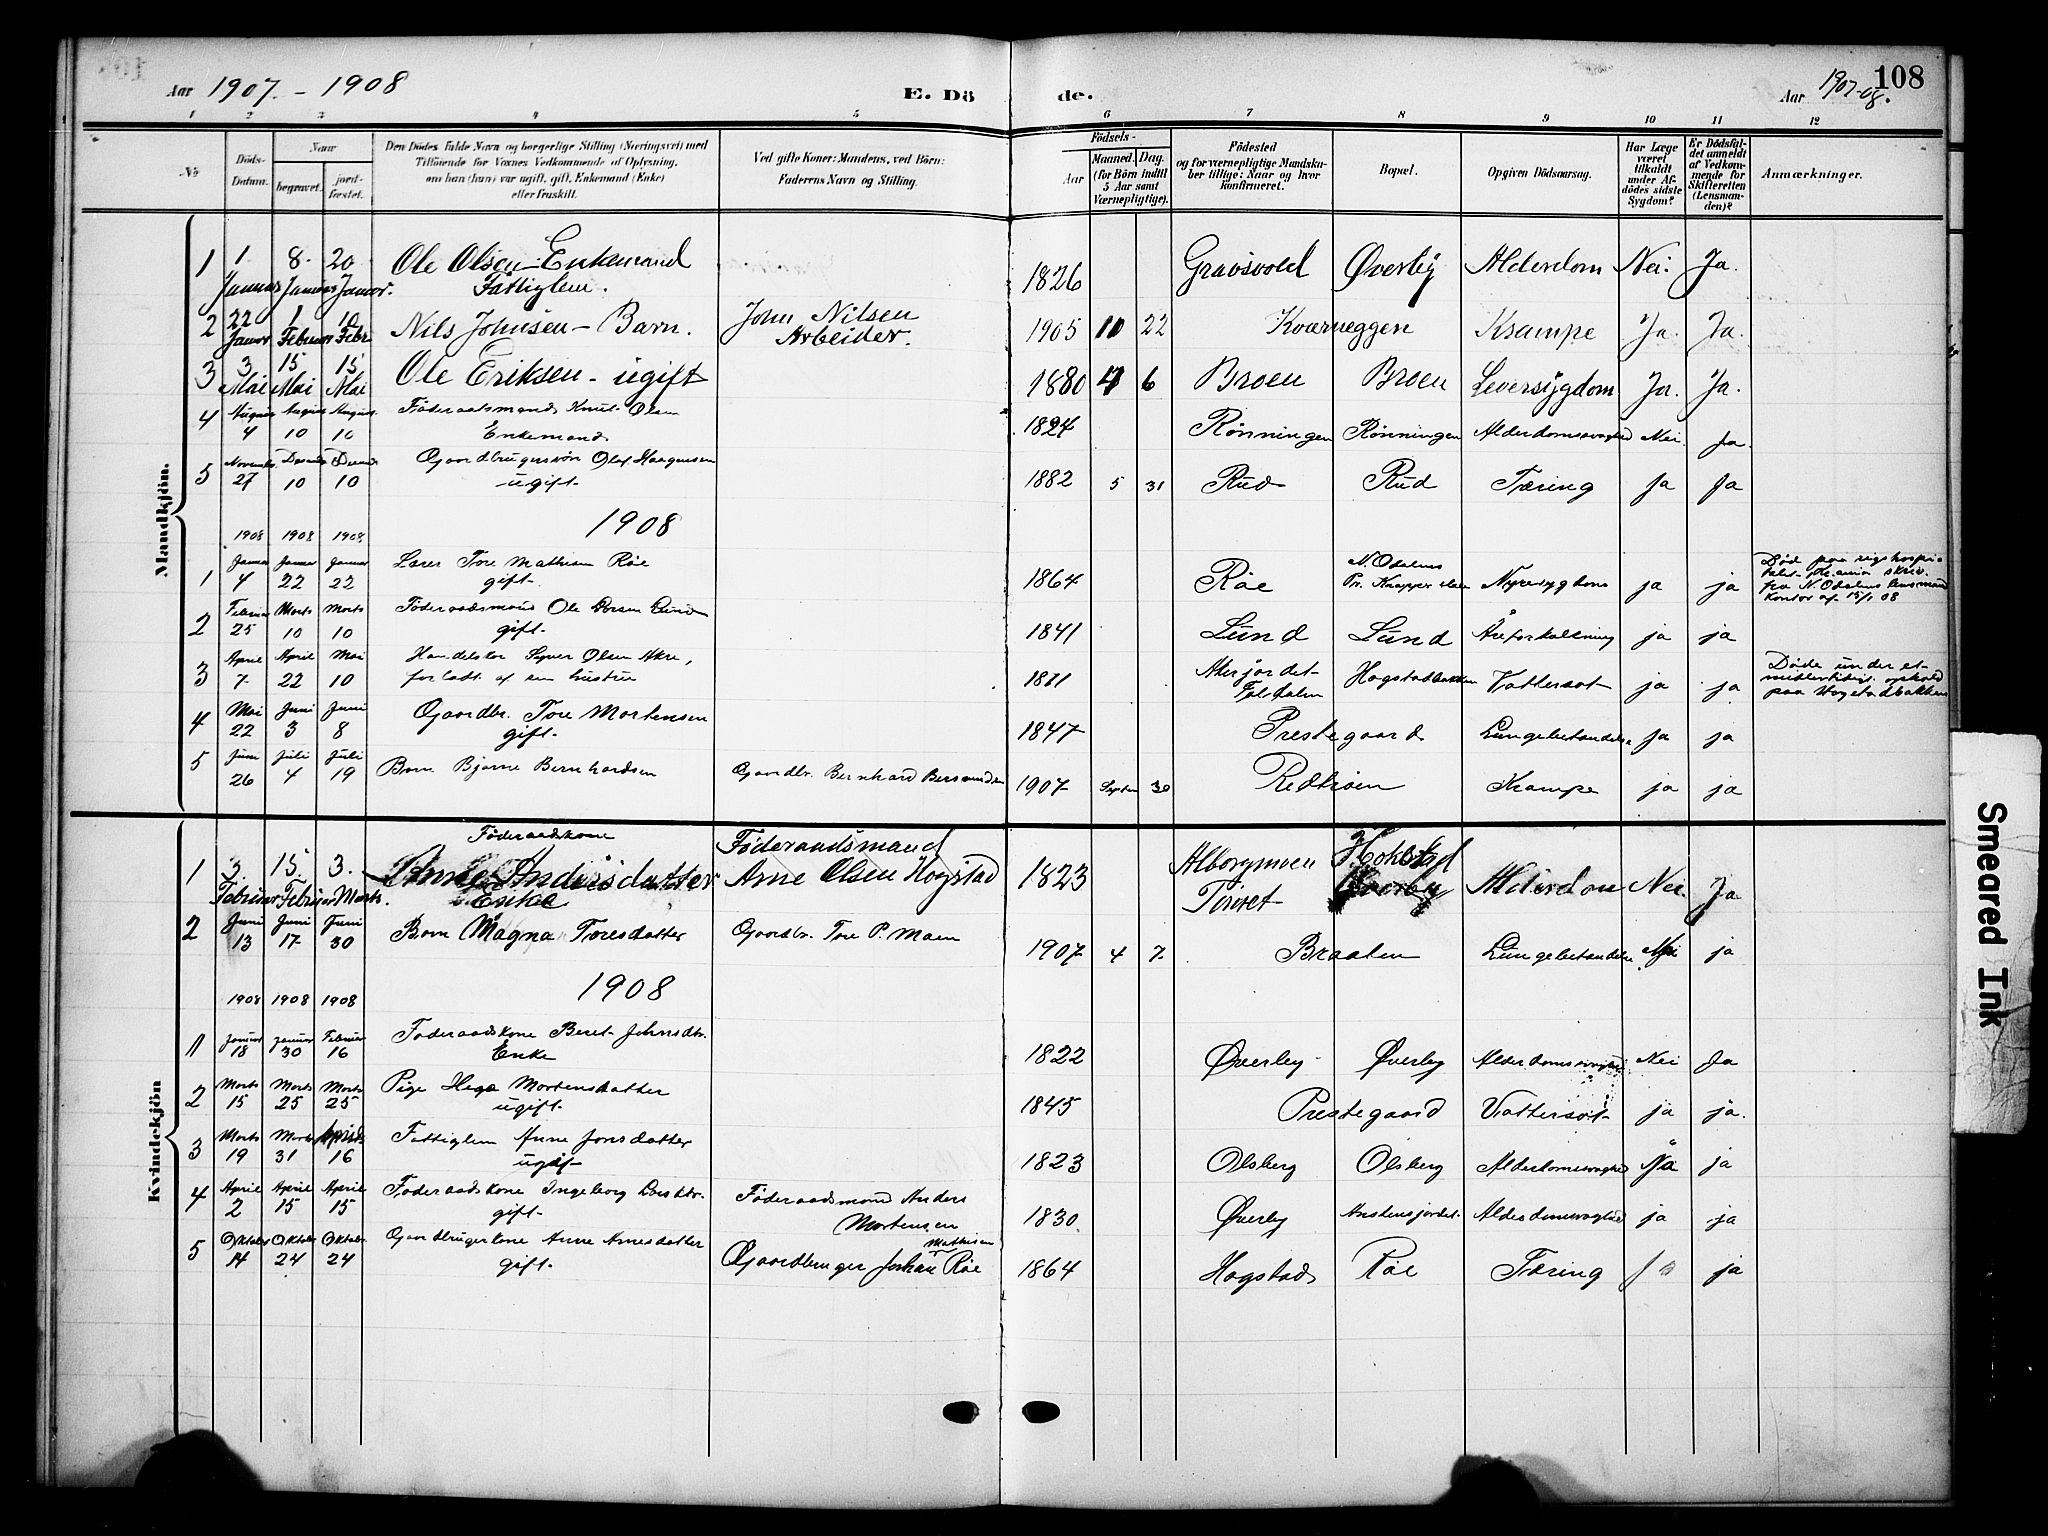 Aar 1907 - 1908 E. Dö de. Aar 1907-08. 108
1 2 3 4 5 6 7 8 9 10 11 12
No Döds-Datum. Naar begravet. jord-fæstet. Den Dödes fulde Navn og borgerlige Stilling (Næringsvei) med Tilföiende for Voxnes Vedkommende af Oplysning, om han (hun) var ugift, gift, Enkemand (Enke) eller fraskilt. Ved gifte Koner: Mandens, ved Börn: Faderens Navn og Stilling. Födsels- Aar Maaned. Dag. (for Börn indtil 5 Aar samt Værnepligtige). Födested og for værnepligtige Mandskaber tillige: Naar og hvor konfirmeret. Bopæl. Opgiven Dödsaarsag. Har Læge været tilkaldt under Afdödes sidste Sygdom? Er Dödsfaldet anmeldt af Vedkommende for Skifteretten (Lensmanden)? Anmærkninger.
Mandkjön.
1 1 Januar 8 Januar 20 Januar. Ole Olsen - Enkemand Fattiglem. 1826 Gravsvold Øverby Alderdom Nei. Ja.
2 22 Januar 1 Februar 10 Febr Nils Johnsen - Barn. John Nilsen Arbeider. 1905 10 22 Kværneggen Krampe Ja. Ja.
3 3 Mai 15 Mai 15 Mai Ole Eriksen - ugift 1880 4 6 Broen Broen Leversygdom Ja. Ja.
4 August 4 August 10 August 10 Føderaadsmand Knut Olsen Enkemand 1824 Rønningen Rønningen Alderdomssvaghed Nei. Ja.
5 November 27 10 10 Gaardbrugersøn Olaf Haagensen ugift 1882 5 31 Rud Rud Tæring Ja Ja
1908
1908 1908 1908
1 Januar 4 Januar 22 Januar 22 Lærer Tore Mathisen Røe gift. 1864 Røe N. Odalens Pr. Nyresygdom ja ja Død paa rigshospi-
talet skriv.
fra N. Odalens lensmand
kontor af 15/1 08
2 Februar 25 Marts 10 Marts 10 Føderaadsmand Ole Larsen Lund gift. 1841 Lund Lund Åreforkalkning ja ja
3 April 7 April 22 Mai 10 Handelskar Syver Olsen Akre, forladt af sin hustru Akerjordet Foldalen Hogstadbakken Vattersot ja ja Døde under et
midlertidigt ophold
paa Hogstadbakken
4 Mai 22 Juni 3 Juni 8 Gaardbr. Tore Mortensen gift. 1847 Prestegaard Lungebetændelse ja ja
5 Juni 26 Juli 4 Juli 19 Barn Bjarne Bernhardsen Gaardbr. Bernhard 1907 Septem 30 Krampe ja ja
Kvindekjön
1 3. Februar 15 Februar 3. Marts. Føderaadskone Anne Andersdatter Enke Føderaadsmand Arne Olsen Hogstad 1823 Alderdom Nei. Ja
2 Juni 13 Juni 17 Juni 30 Barn Magna Toresdatter Gaardbr. Tore P. Moen 1907 4 7 Braaten Lungebetændelse Nei ja
1908
1908 1908 1908
1 Januar 18 Januar 30 Februar 16 Føderaadskone Beret Johnsdtr. Enke 1822 Øverby Øverby Alderdomssvaghed Nei Ja
2 Marts 15 Marts 25 Marts 25 Pige Hege Mortensdatter ugift. 1845 Prestegaard Vattersot ja ja.
3 Marts 19 Marts 31 April 16 Fattiglem Anne Jonsdatter ugift 1823 Olsberg Olsberg Alderdomssvaghed ja
4 April 2 April 15 April 15 Føderaadskone Ingeborg Larsdtr. gift. Føderaadsmand Anders Mortensen 1830 Øverby Alderdomssvaghed ja ja
5 Oktober 14 Oktober 24 Oktober 24 Gaardbrugerkone Anne Arnesdatter gift. Gaardbruger Johan Mathisen Røe 1864 Hogstad Røe Tæring ja ja
Smeared Ink